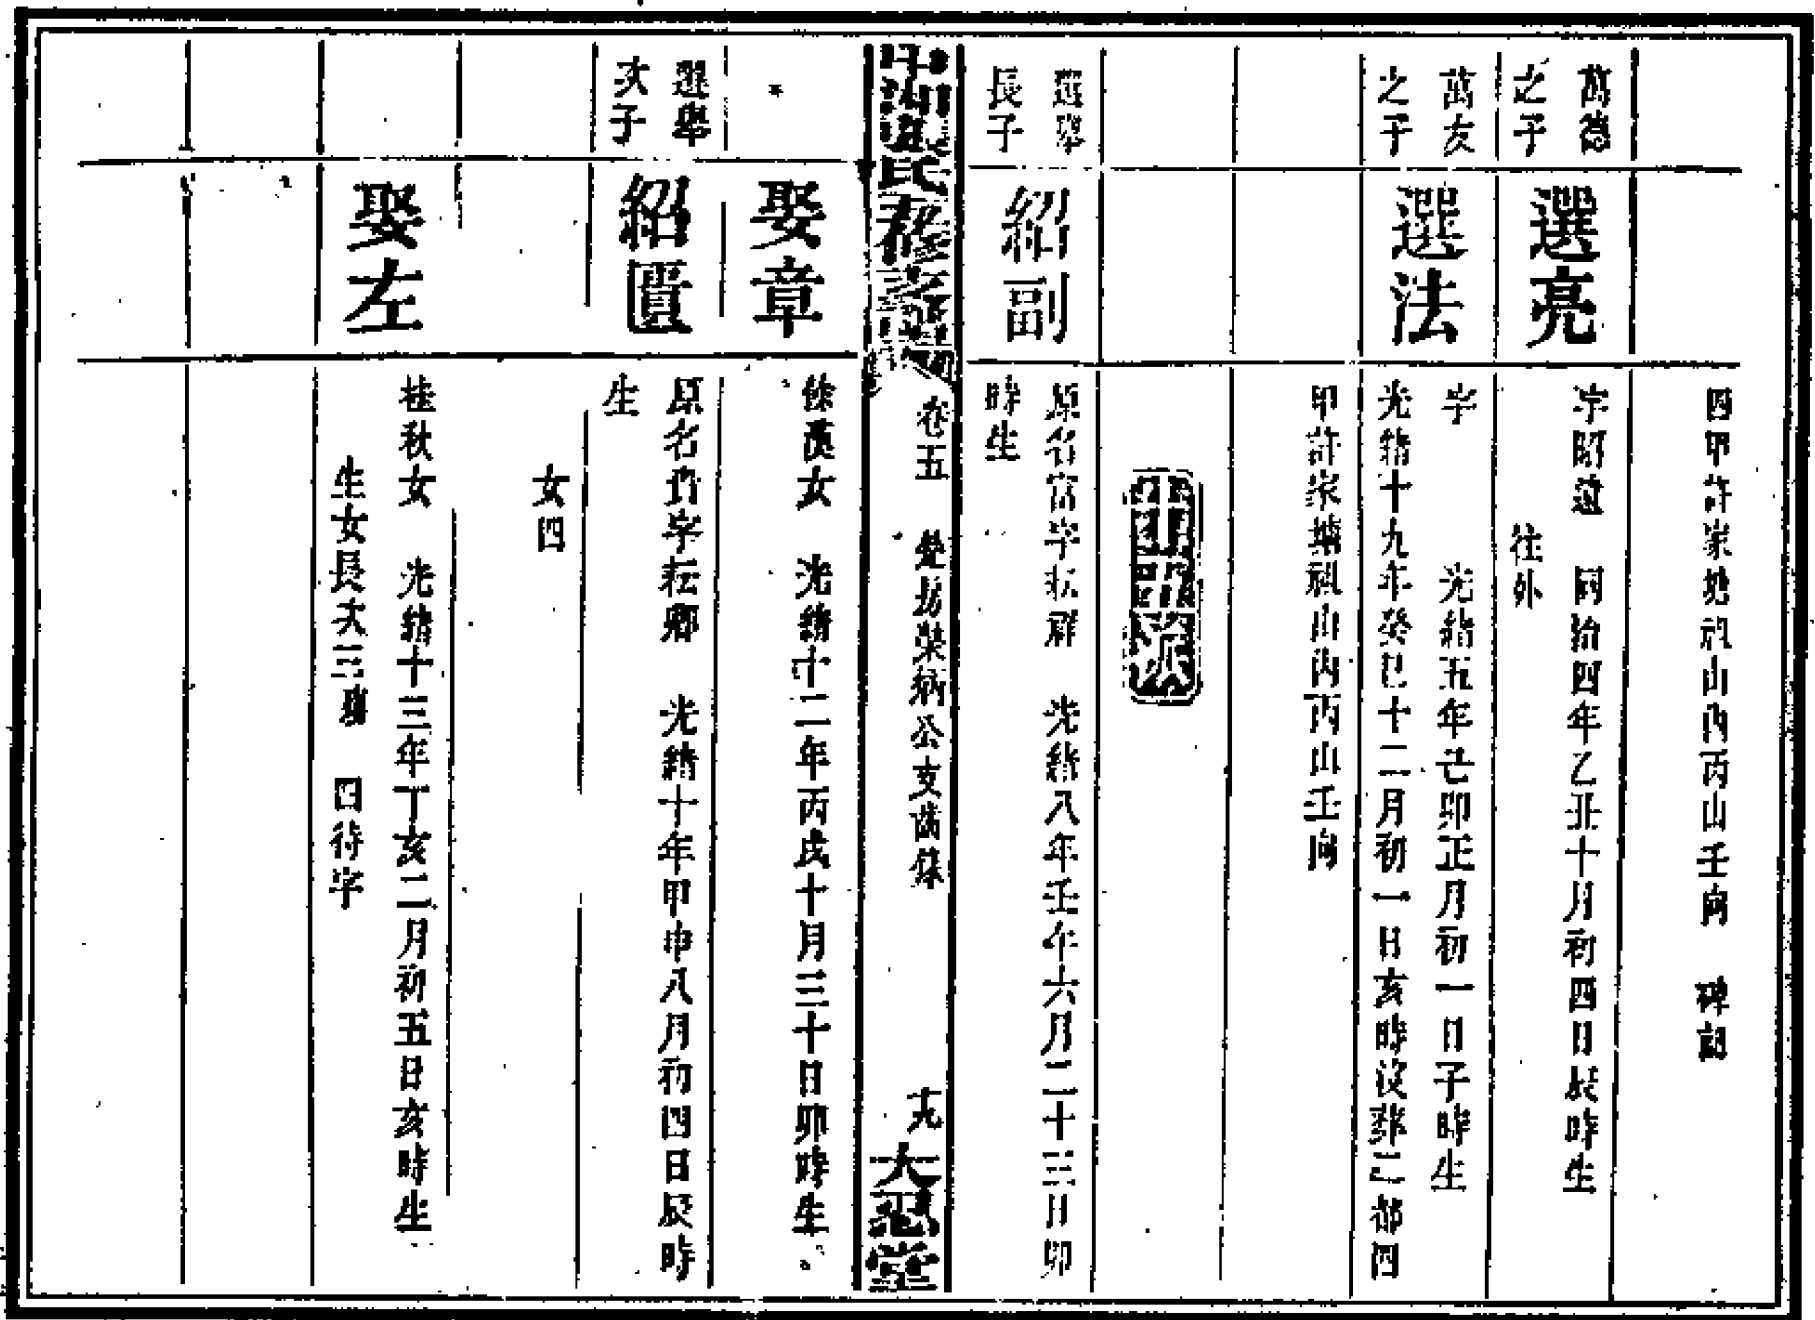 四甲許家塘祖山內丙山壬向 碑記
萬德
之子
選亮
字昭達 同治四年乙丑十月初四日辰時生
往外
萬友
之子
選法
字 光緒五年己卯正月初一日子時生
光緒十九年癸巳十二月初一日亥時沒葬二都四
甲許家塘祖山內丙山壬向
派
選舉
長子
紹副
原名富字耘群 光緒八年壬午六月二十三日卯
時生
氏
卷五 房榮公支齒錄
大忍堂
娶章
徐漢女 光緒十二年丙戌十月三十日卯時生
選舉
次子
紹匱
原名貴字耘鄉 光緒十年甲申八月初四日辰時
生
女四
娶左
桂秋女 光緒十三年丁亥二月初五日亥時生
生女長次三殤 四待字